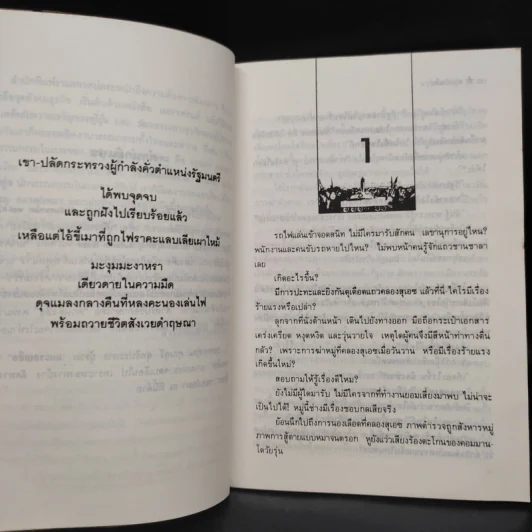 เขา-ปลัดกระทรวงผู้กำลังคั่วตำแหน่งรัฐมนตรี
ได้พบจุดจบ
และถูกฝังไปเรียบร้อยแล้ว
เหลือแต่ไอ้ขี้เมาที่ถูกไฟราคะแลบเลียเผาไหม้
มะงุมมะงาหรา
เดียวดายในความมืด
ดุจแมลงกลางคืนที่หลงคะนองเล่นไฟ
พร้อมถวายชีวิตสังเวยดำฤษณา
1
รถไฟแล่นเข้าจอดสนิท ไม่มีใครมารับสักคน เลขานุการอยู่ไหน?
พนักงานและคนขับรถหายไปไหน? ไม่พบหน้าคนรู้จักแถวชานชาลา
เลย
เกิดอะไรขึ้น?
มีการปะทะและยิงกันดุเดือดแถวคลองสุเอซ แล้วที่นี่ ไคโรมีเรื่อง
ร้ายแรงหรือเปล่า?
ลุกจากที่นั่งด้านหน้า เดินไปยังทางออก มือถือกระเป๋าเอกสาร
เคร่งเครียด หงุดหงิด และวุ่นวายใจ เหตุใดผู้คนจึงมีสีหน้าท่าทางตื่น
กลัว? เพราะการฆ่าหมู่ที่คลองสุเอซเมื่อวันวาน หรือมีเรื่องร้ายแรง
เกิดขึ้นใหม่?
สอบถามให้รู้เรื่องดีไหม?
ยังไม่มีผู้ใดมารับ ไม่มีใครจากที่ทำงานยอมเสี่ยงมาพบ ไม่น่าจะ
เป็นไปได้! หมู่นี้ช่างมีเรื่องชอบกลเสียจริง
ย้อนนึกไปถึงการนองเลือดที่คลองสุเอซ ภาพตำรวจถูกสังหารหมู่
ภาพการสู้ตายแบบหมาจนตรอก หูยังแว่วเสียงร้องตะโกนของคอมมาน-
โดวัยรุ่น